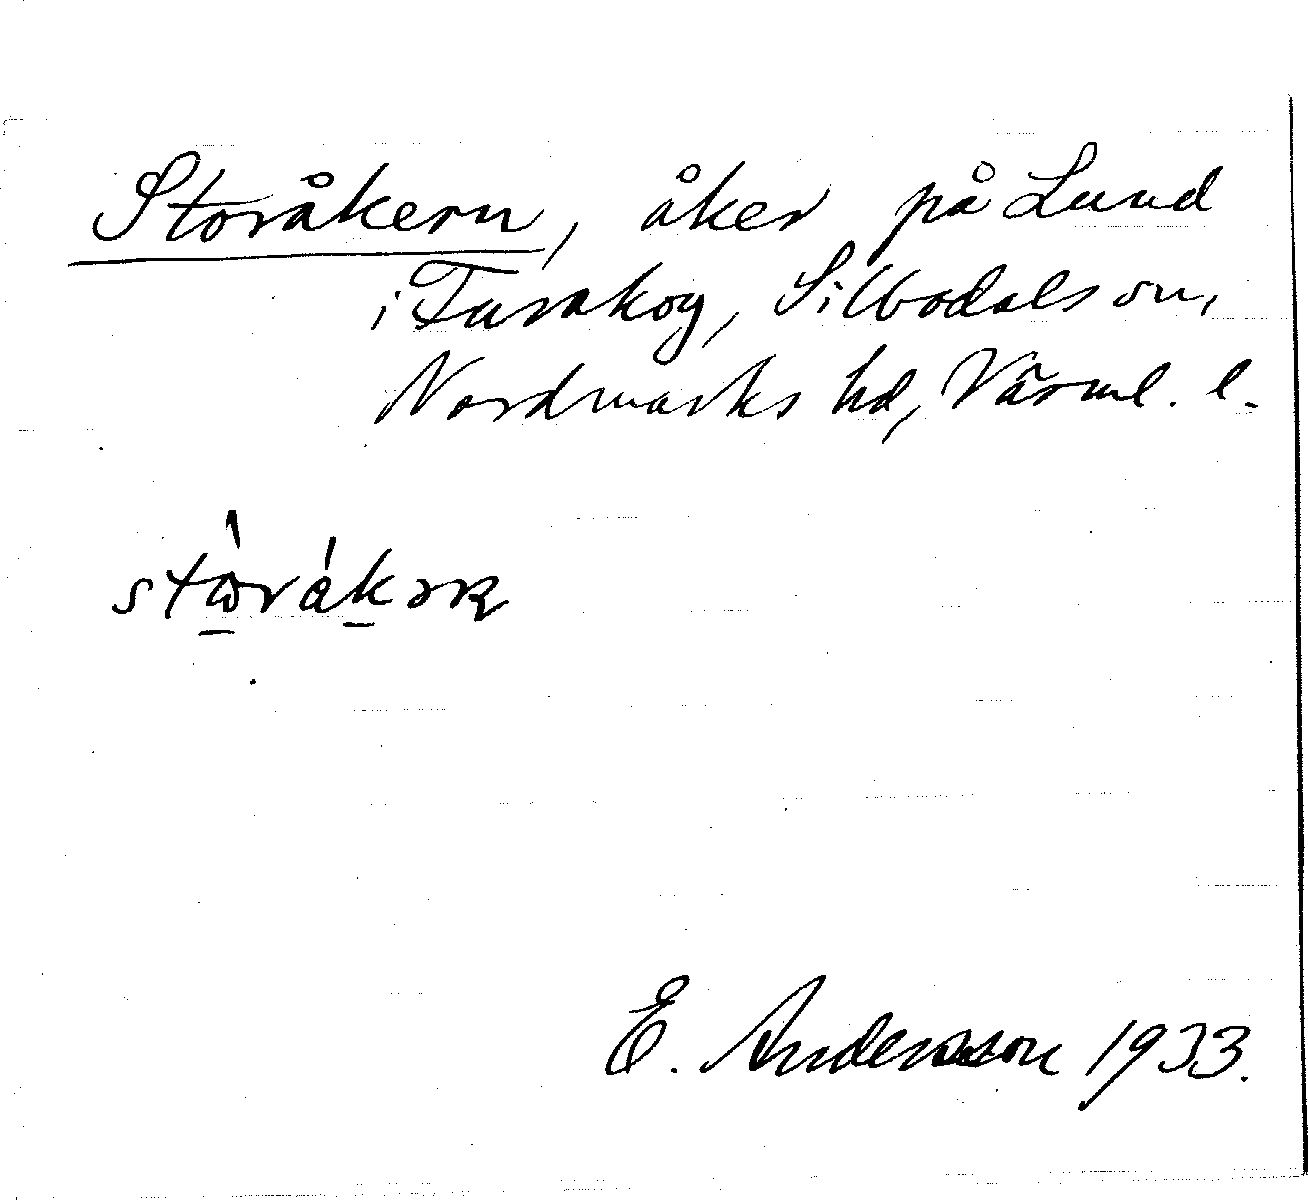 Storåkern, åker på Lund
i Turskog, Silbodals sn,
Nordmarks hd, Värml. l.
E. Andersson 1933.